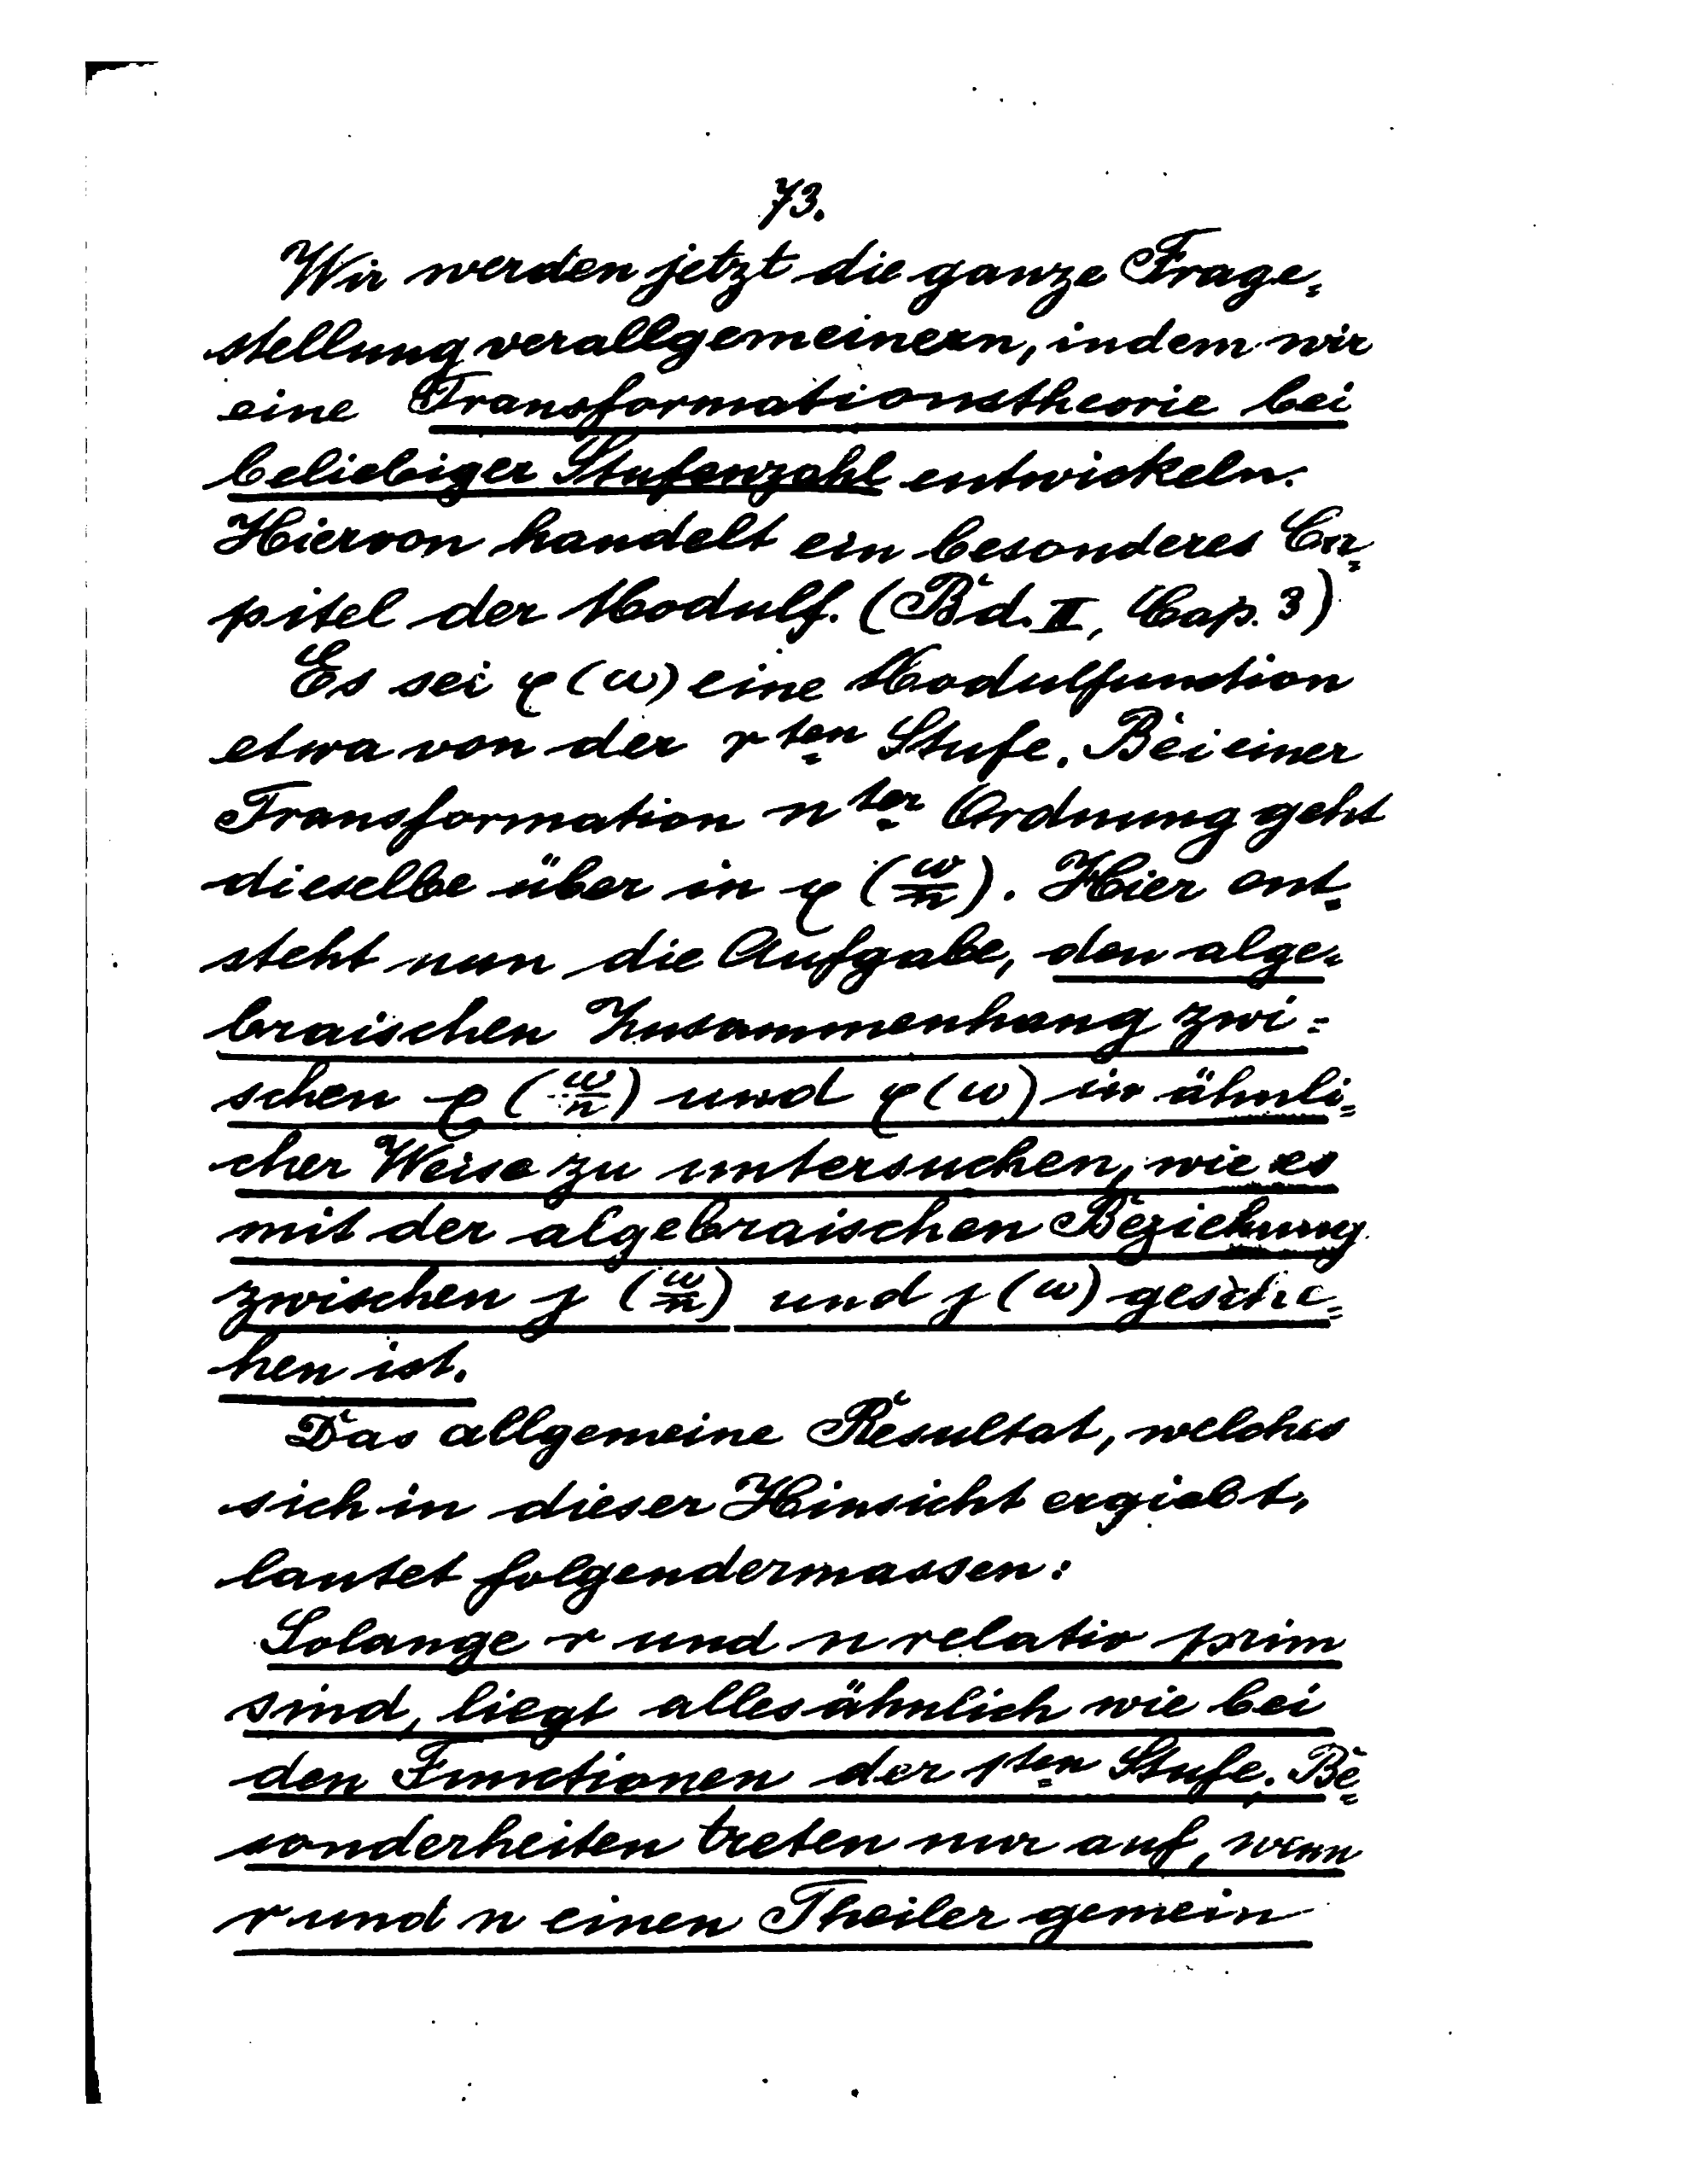 73.
Wir werden jetzt die ganze Frage=
stellung verallgemeinern, indem wir
eine Transformationstheorie bei
beliebiger Stufenzahl entwickeln.
Hiervon handelt ein besonderes Ca=
pitel der Modulf. (Bd. II, Cap. 3)
Es sei φ(ω) eine Modulfunction
etwa von der r ten Stufe. Bei einer
Transformation n ter Ordnung geht
dieselbe über in φ (ω/n). Hier ent=
steht nun die Aufgabe, den alge=
braischen Zusammenhang zwi=
schen φ (ω/n) und φ(ω) in ähnli=
cher Weise zu untersuchen, wie es
mit der algebraischen Beziehung
zwischen j (ω/n) und j (ω) gesche=
hen ist.
Das allgemeine Resultat, welches
sich in dieser Hinsicht ergiebt,
lautet folgendermassen:
Solange r und n relativ prim
sind, liegt alles ähnlich wie bei
den Functionen der 1ten Stufe. Be=
sonderheiten treten nur auf, wenn
r und n einen Theiler gemein